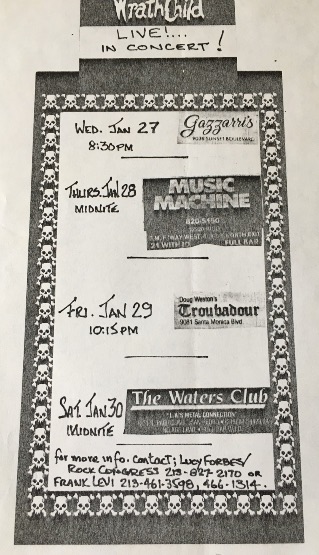 WRATHCHILD
LIVE!...
IN CONCERT!
WED. JAN 27
8:30PM
Gazzarri's
9039 SUNSET BOULEVARD
THURS. JAN 28
MIDNITE
MUSIC
MACHINE
820-5150
21 WITH ID FULL BAR
FRI. JAN 29
10:15PM
Doug Weston's
Troubadour
9081 Santa Monica Blvd.
SAT. JAN 30
MIDNITE
The Waters Club
"L.A.'S METAL CONNECTION"
for more info. contact; LUCY FORBES/
ROCK CONGRESS 213-827-2170 OR
FRANK LEVI 213-461-3598, 466-1314.